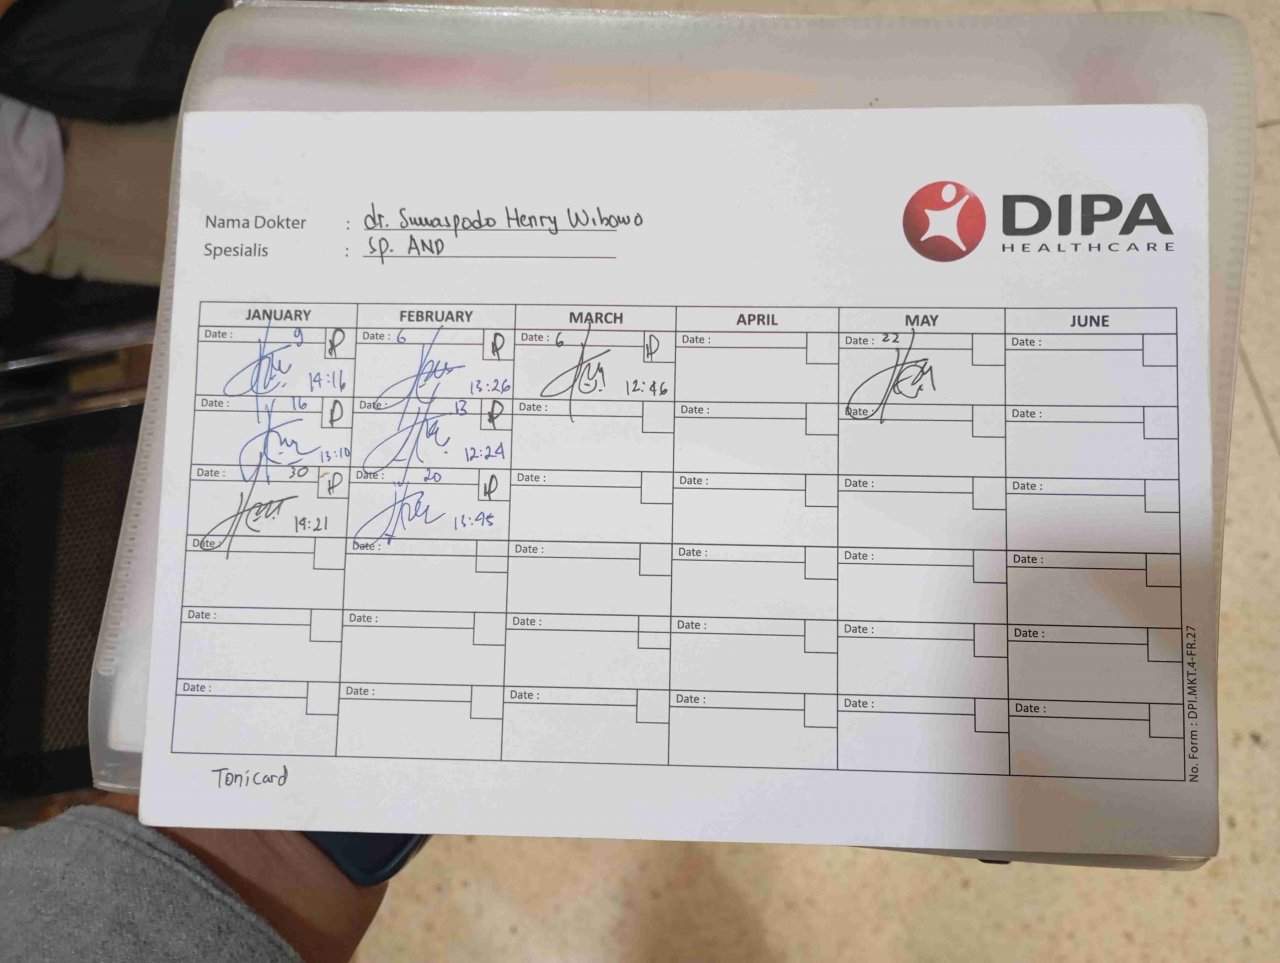 DIPA
HEALTHCARE
Nama Dokter : dr. Suwaspodo Henry Wibowo
Spesialis : Sp. AND
JANUARY FEBRUARY MARCH APRIL MAY JUNE
Date : 9 Date : 6 Date : 6 Date : Date : 22 Date :
14:16 13:26 12:46
Date : 16 Date : 13 Date : Date : Date : Date :
13:10 12:24
Date : 30 Date : 20 Date : Date : Date : Date :
14:21 13:45
Date : Date : Date : Date : Date : Date :
Date : Date : Date : Date : Date : Date :
Date : Date : Date : Date : Date : Date :
Tonicard
No. Form : DPI.MKT.4-FR.27